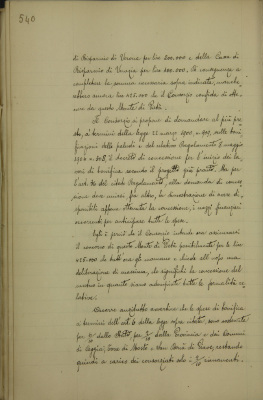 540
di Risparmio di Verona per lire 200.000 e della Cassa di
Risparmio di Venezia per lire 200.000. Di conseguenza a
completare la somma necessaria sopra indicata,
ancora lire 425.000 che il Consorzio confida di
da questo Monte di Pietà.
Il Consorzio si propone di domandare al più pre-
sto, ai termini della legge 22 marzo 1900, n. 195, sulle boni-
ficazioni delle paludi e del relativo Regolamento 8 maggio
1904 n. 368, il decreto di concessione per l'inizio dei la-
vori di bonifica secondo il progetto già pronto. Ma per
l'art. del citato Regolamento, alla domanda di conces-
sione deve unirsi, fra altro, la dimostrazione di avere di-
sponibili appena ottenuta la concessione, i mezzi finanziari
occorrenti per anticipare tutte le spese.
Egli è perciò che il Consorzio intende ora assicurarsi
il concorso di questo Monte di Pietà possibilmente per le lire
425.000 che
deliberazione di massima, che significhi la concessione del
mutuo in quanto siano adempiute tutte le formalità re-
lative.
Occorre anzitutto avvertire che le spese di bonifica
a termini dell'art. 6 della legge sopra citata, sono sostenute
per dallo Stato, per dalla Provincia e dai Comuni
di Ceggia, Torre di Mosto e San Donà di Piave, restando
quindi a carico dei consorziati solo i rimanenti.